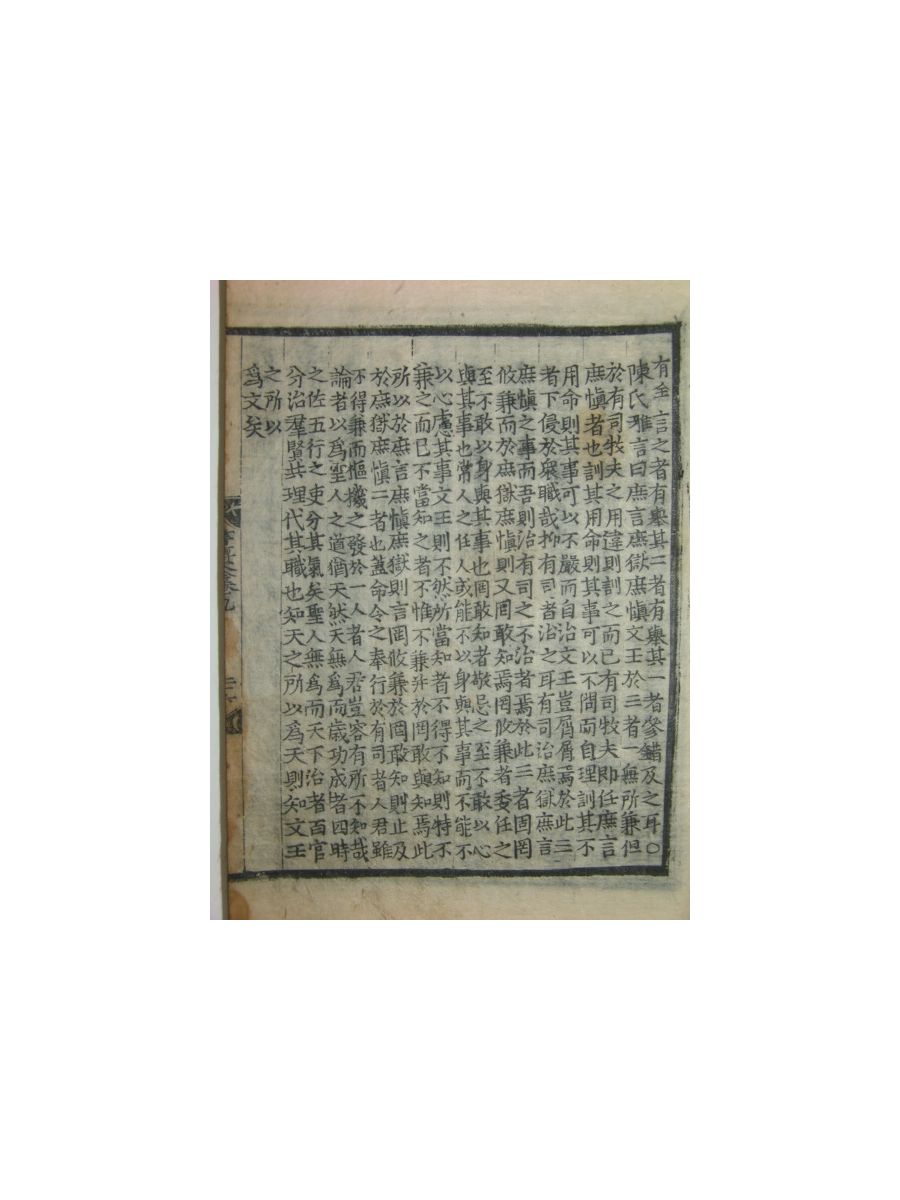 有全言之者有舉其二者有舉其一者參錯及之耳○
陳氏雅言曰庶言庶獄庶慎文王於三者一無所兼但
於有司牧夫之用違則訓之而已有司牧夫即任庶言
庶慎者也訓其用命則其事可以不問而自理訓其不
用命則其事可以不嚴而自治文王豈屑屑焉於此三
者下侵於衆職哉抑有司者治之耳有司治庶獄庶言
庶慎之事而吾則治有司之不治者焉於此三者固罔
攸兼而於庶獄庶慎則又罔敢知焉罔攸兼者委任之
至不敢以身與其事也罔敢知者敬忌之至不敢以心
與其事也常人之任人或能不以身與其事而不能不
以心慮其事文王則不然所當知者不得不知則特不
兼之而已不當知之者不惟不兼幷於罔敢與知焉此
所以於庶言庶慎庶獄則言罔攸兼於罔敢知則止及
於庶獄庶慎二者也蓋命令之奉行於有司者人君雖
不得兼而樞機之發於一人者人君豈容有所不知哉
論者以爲聖人之道猶天然天無爲而歲功成者四時
之佐五行之吏分其氣矣聖人無爲而天下治者百官
分治羣賢共理代其職也知天之所以爲天則知文王
之所以
爲文矣